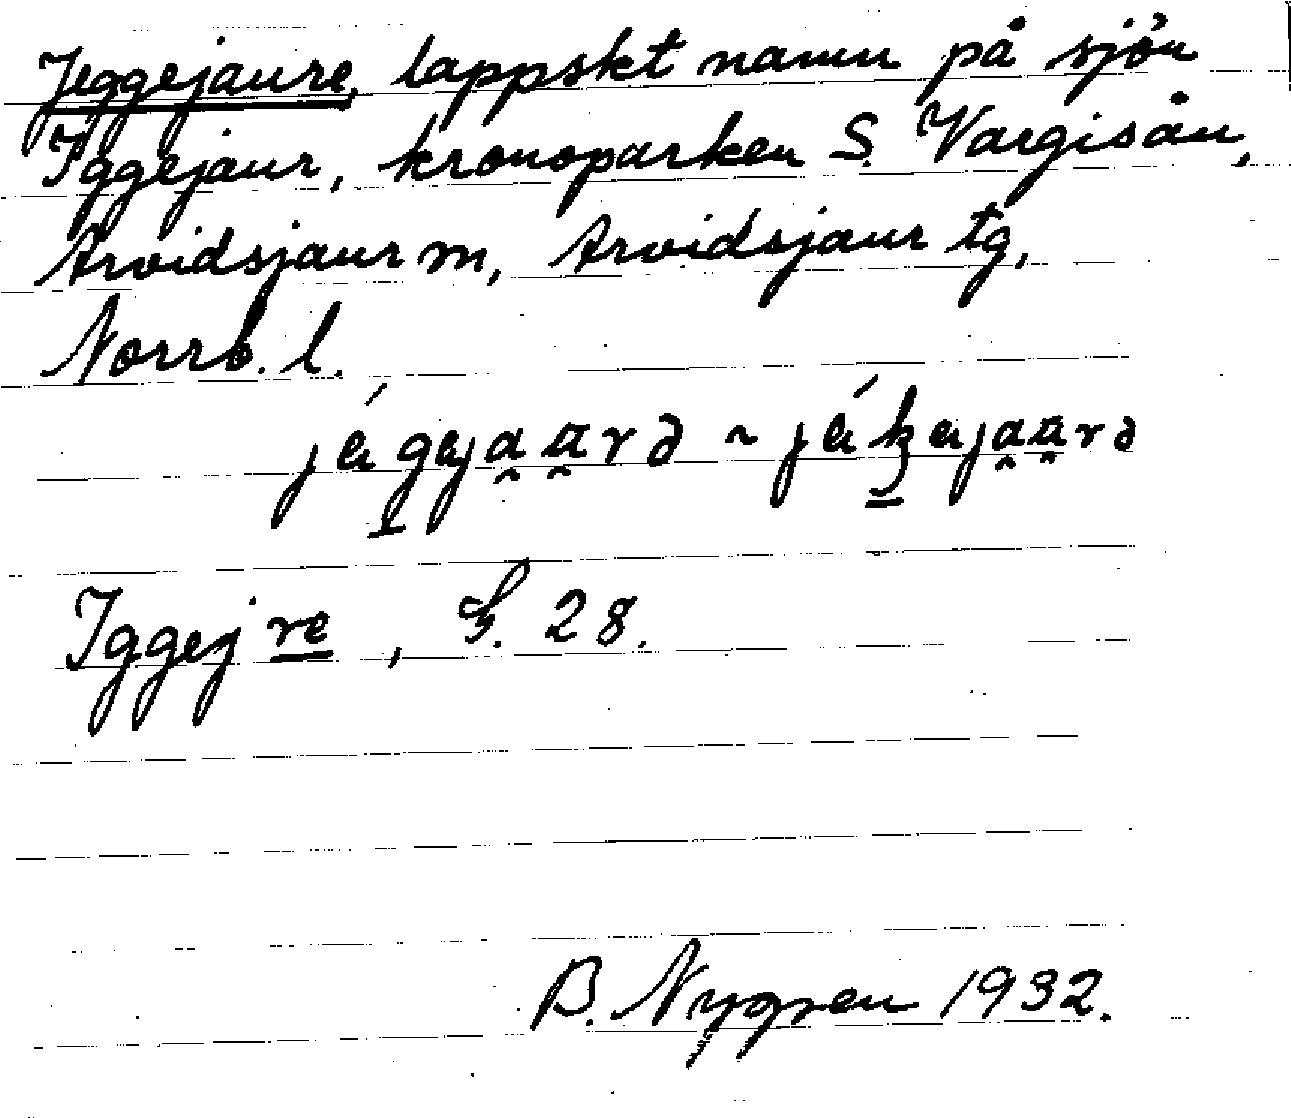 Jeggejaure, lappskt namn på sjön
Iggejaur, kronoparken S. Vargisån,
Arvidsjaur m, Arvidsjaur tg,
Norrb. l.
Iggejre, S. 28.
B. Nygren 1932.